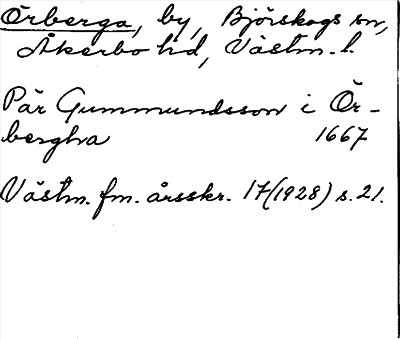 Örberga, by, Björskogs sn,
Åkerbo hd, Västm. l.
Pär Gummundsson i Ör-
bergha 1667
Västm. fm. årsskr. 17(1928) s. 21.